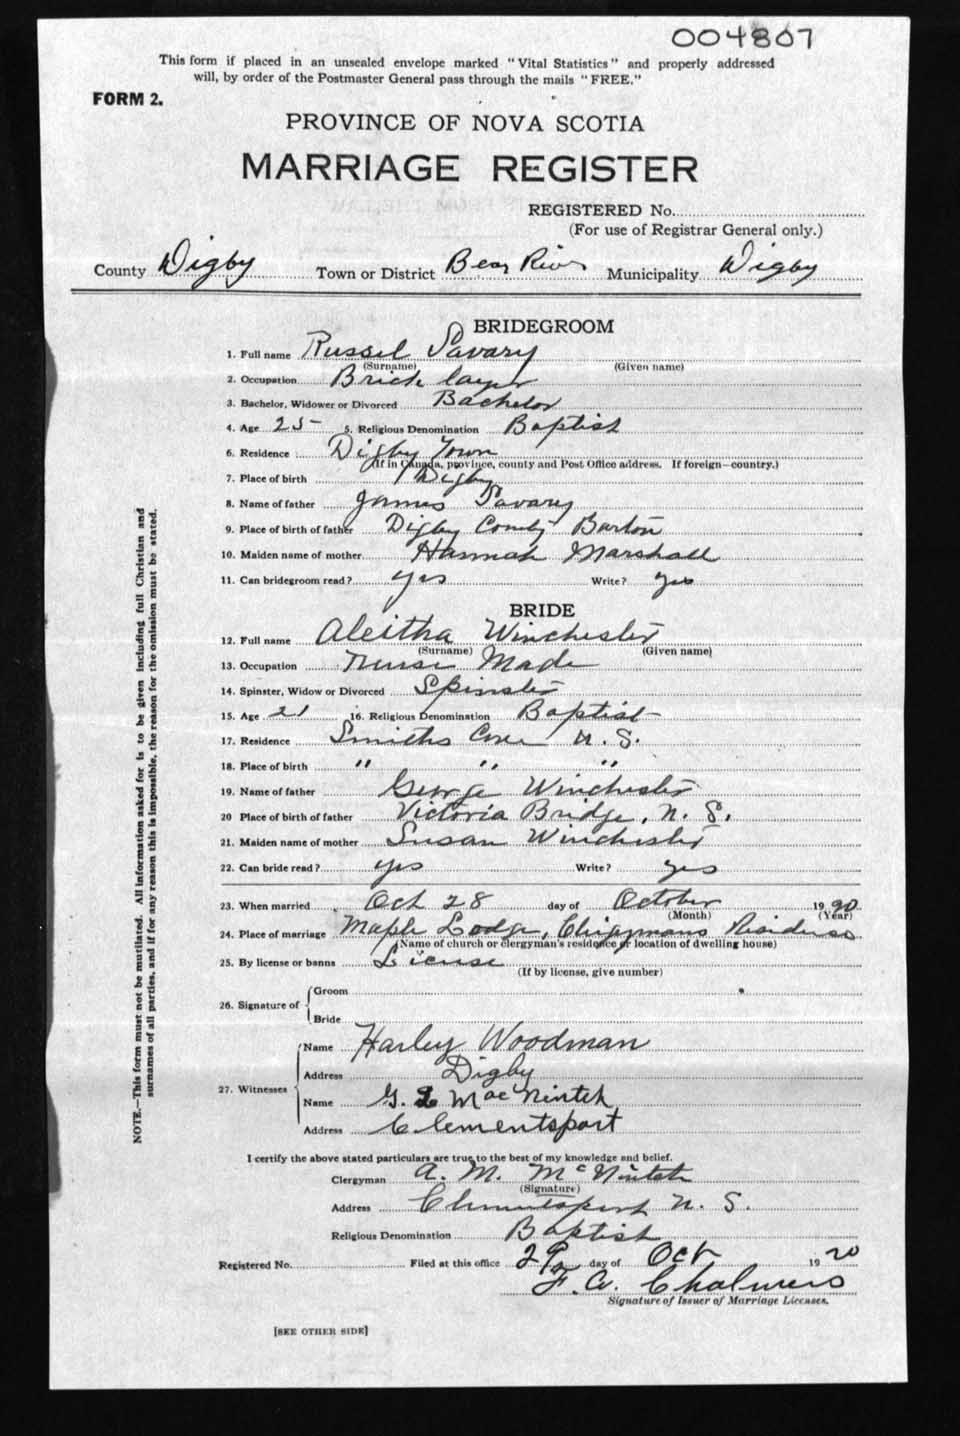 004807
This form if placed in an unsealed envelope marked "Vital Statistics" and properly addressed
will, by order of the Postmaster General pass through the mails "FREE."
FORM 2.
PROVINCE OF NOVA SCOTIA
MARRIAGE REGISTER
REGISTERED No.
(For use of Registrar General only.)
County Digby Town or District Bear River Municipality Digby
BRIDEGROOM
1. Full name Russel Savary
(Surname) (Given name)
2. Occupation Brick layer
3. Bachelor, Widower or Divorced Bachelor
4. Age 25 5. Religious Denomination Baptist
6. Residence Digby Town
(If in Canada, province, county and Post Office address. If foreign—country.)
7. Place of birth Digby
8. Name of father James Savary
9. Place of birth of father Digby County Barton
10. Maiden name of mother Hannah Marshall
11. Can bridegroom read? yes Write? yes
BRIDE
12. Full name Aleitha Winchester
(Surname) (Given name)
13. Occupation Nurse Made
14. Spinster, Widow or Divorced Spinster
15. Age 21 16. Religious Denomination Baptist
17. Residence Smiths Cove N. S.
18. Place of birth " " "
19. Name of father George Winchester
20 Place of birth of father Victoria Bridge, N. S.
21. Maiden name of mother Susan Winchester
22. Can bride read? yes Write? yes
23. When married Oct 28 day of October 1920
(Month) (Year)
24. Place of marriage Maple Lodge, Clergymans Residence
(Name of church or clergyman's residence or location of dwelling house)
25. By license or banns License
(If by license, give number)
26. Signature of Groom
Bride
27. Witnesses
Name Harley Woodman
Address Digby
Name G. L MacNintch
Address Clementsport
I certify the above stated particulars are true to the best of my knowledge and belief.
Clergyman A. M. McNintch
(Signature)
Address Clementsport N. S.
Religious Denomination Baptist
Registered No. Filed at this office 29 day of Oct 1920
F. W. Chalmers
Signature of Issuer of Marriage Licenses.
[SEE OTHER SIDE]
NOTE.—This form must not be mutilated. All information asked for is to be given including full Christian and
surnames of all parties, and if for any reason this is impossible, the reason for the omission must be stated.